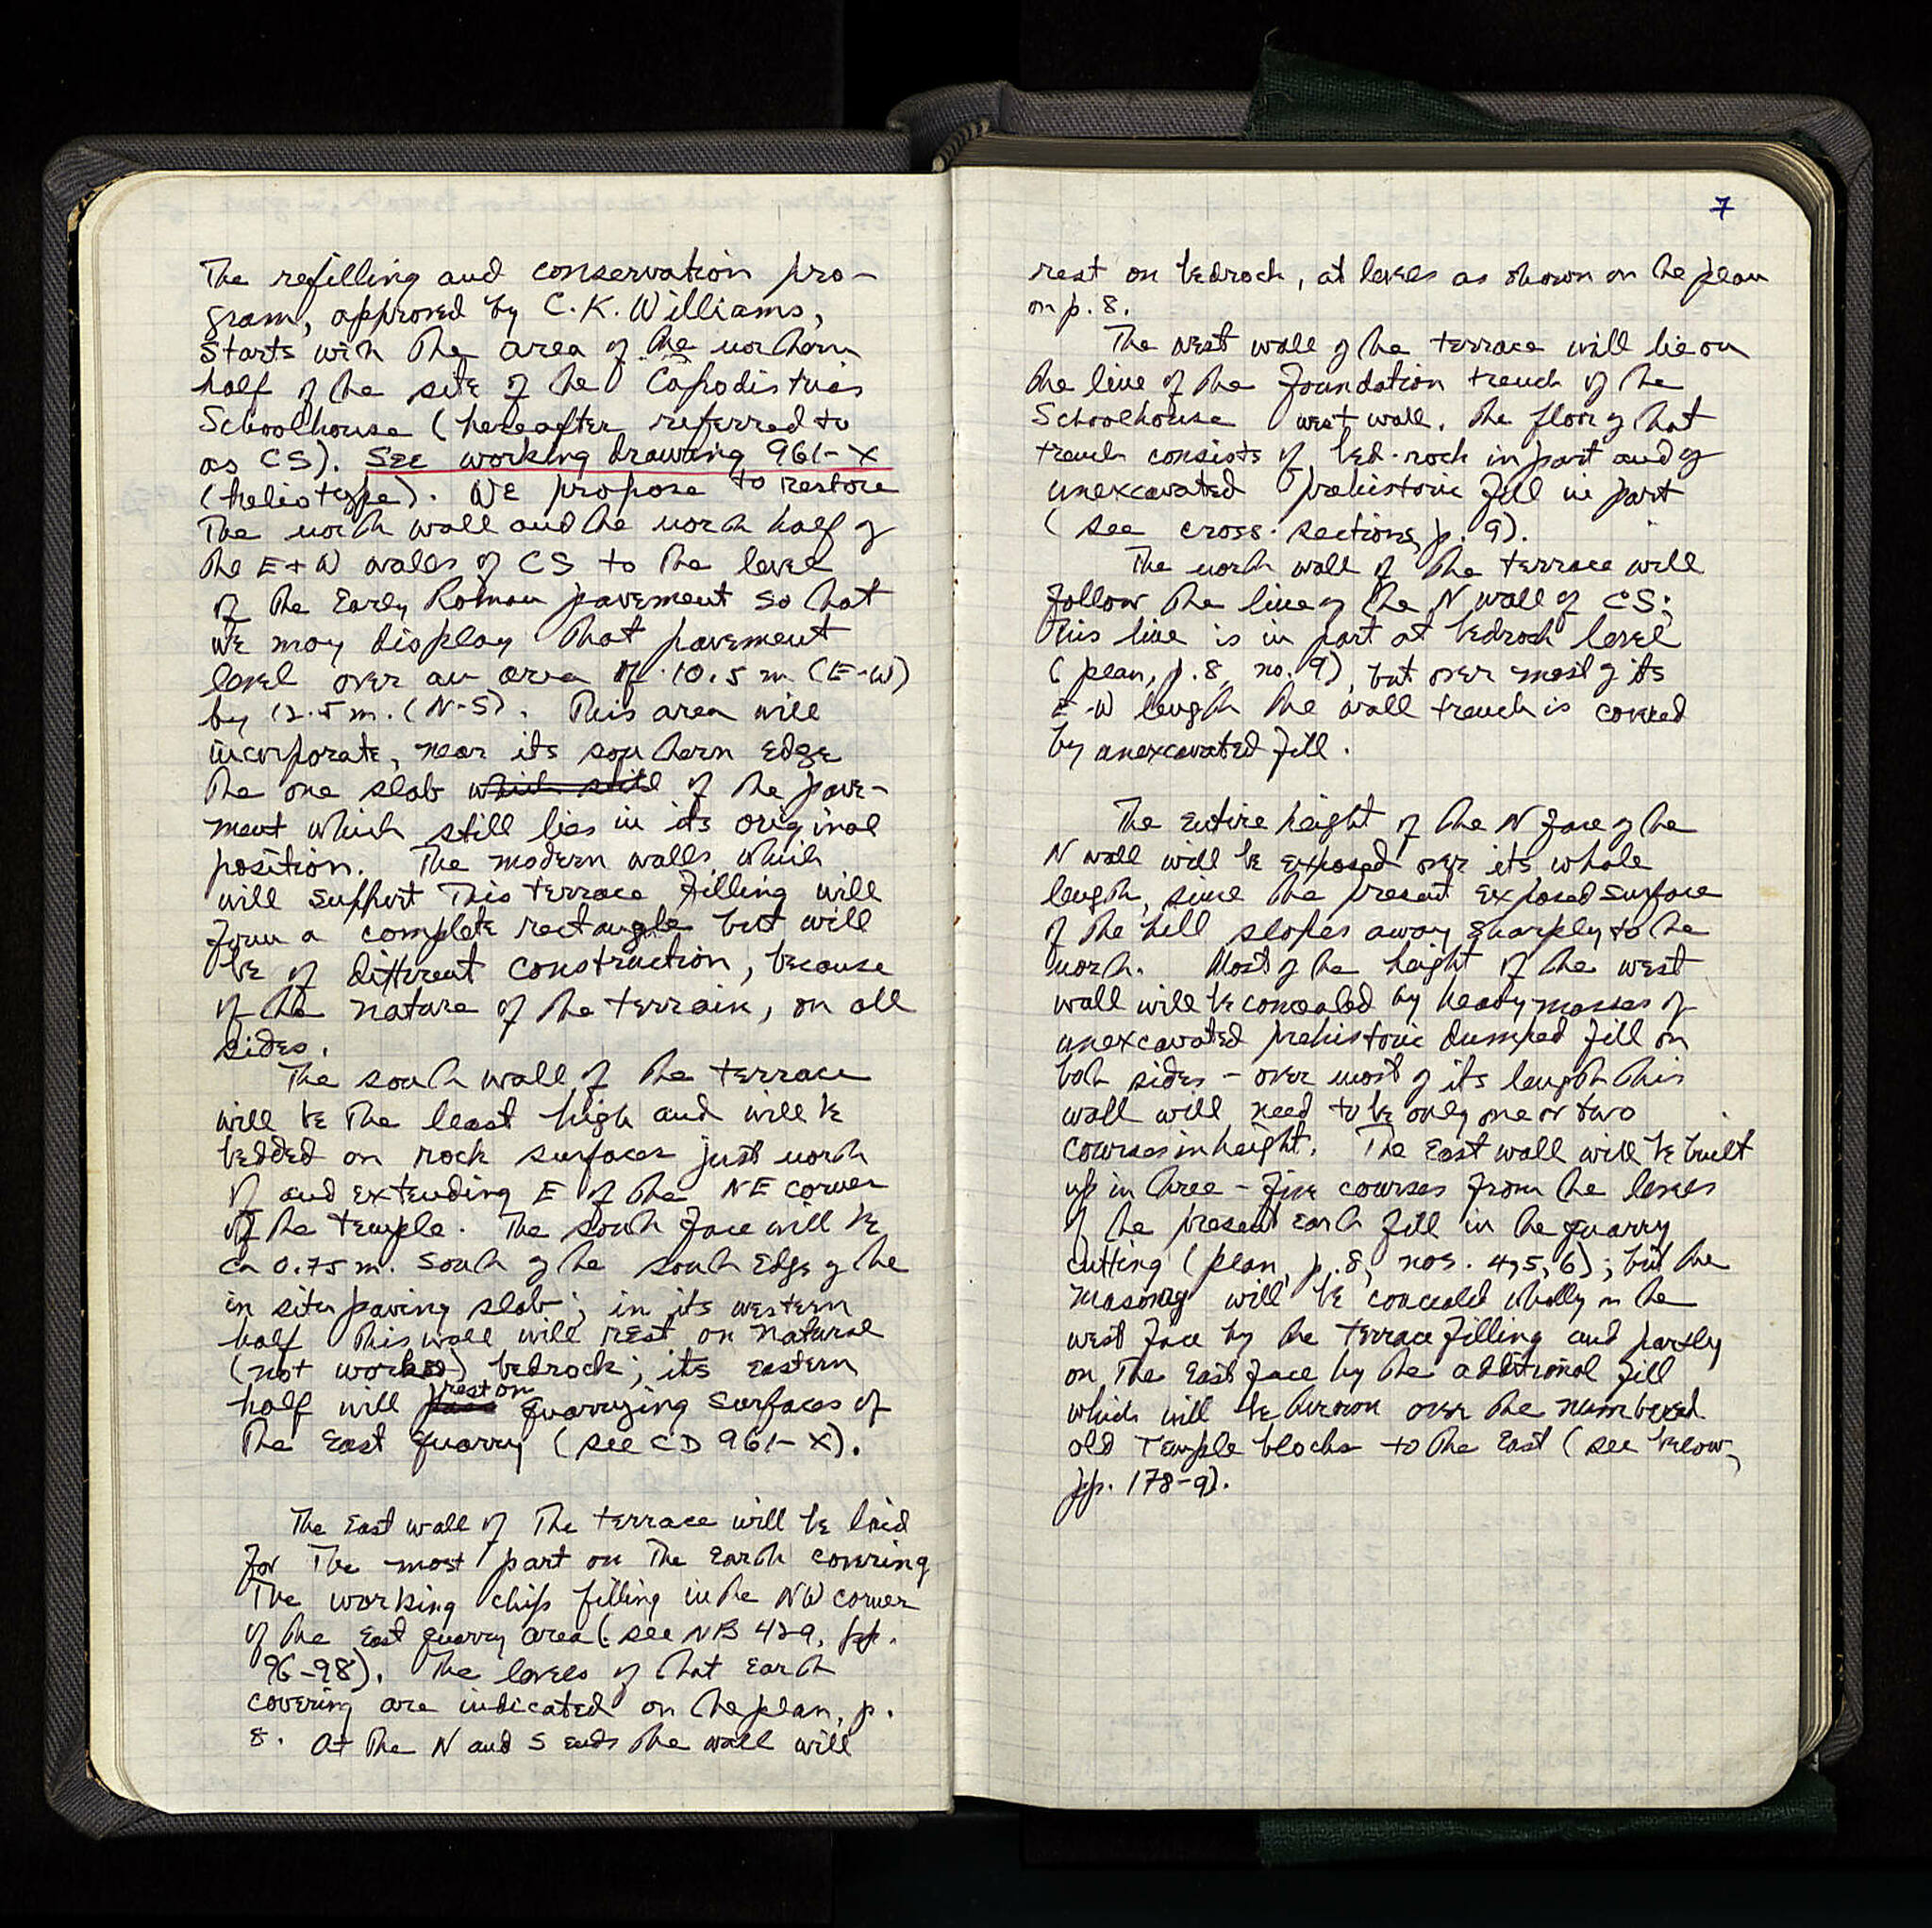 The refilling and conservation pro-
gram, approved by C.K. Williams,
starts with the area of the northern
half of the site of the Capodistrias
Schoolhouse (hereafter referred to
as CS). See working drawing 961-X
(heliotype). We propose to restore
The north wall and the north half of
the E+W walls of CS to the level
of the Early Roman pavement so that
we may display that pavement
level over an area of 10.5 m (E-W)
by 12.5 m. (N-S). This area will
incorporate, near its southern edge
the one slab which still of the pave-
ment which still lies in its original
position. The modern walls which
will support this terrace filling will
form a complete rectangle but will
be of different construction, because
of the nature of the terrain, on all
sides.
The south wall of the terrace
will be the least high and will be
bedded on rock surfaces just north
of and extending E of the NE corner
of the temple. The south face will be
ca 0.75 m. south of the south edge of the
in situ paving slab; in its western
half this wall will rest on natural
(not worked) bedrock; its eastern
half will rest on quarrying surfaces of
the East quarry (see CD 961-X).
The East wall of the terrace will be laid
for the most part on the earth covering
the working chips filling in the NW corner
of the East quarry area (see NB 429, pp.
96-98). The levels of that earth
covering are indicated on the plan, p.
8. At the N and S ends the wall will
7
rest on bedrock, at levels as shown on the plan
on p. 8.
The west wall of the terrace will lie on
the line of the foundation trench of the
Schoolhouse west wall. The floor of that
trench consists of bed-rock in part and of
unexcavated prehistoric fill in part
(see cross-sections, p. 9).
The north wall of the terrace will
follow the line of the N wall of CS;
this line is in part at bedrock level
(plan, p. 8, no. 9), but over most of its
E-W length the wall trench is covered
by unexcavated fill.
The entire height of the N face of the
N wall will be exposed over its whole
length, since the present exposed surface
of the hill slopes away sharply to the
north. Most of the height of the west
wall will be concealed by heavy masses of
unexcavated prehistoric dumped fill on
both sides - over most of its length this
wall will need to be only one or two
courses in height. The East wall will be built
up in three - five courses from the levels
of the present earth fill in the quarry
cutting (plan, p. 8, nos. 4, 5, 6); but the
masonry will be concealed wholly on the
west face by the terrace filling and partly
on the East face by the additional fill
which will be thrown over the numbered
old Temple blocks to the East (see below,
pp. 178-9).